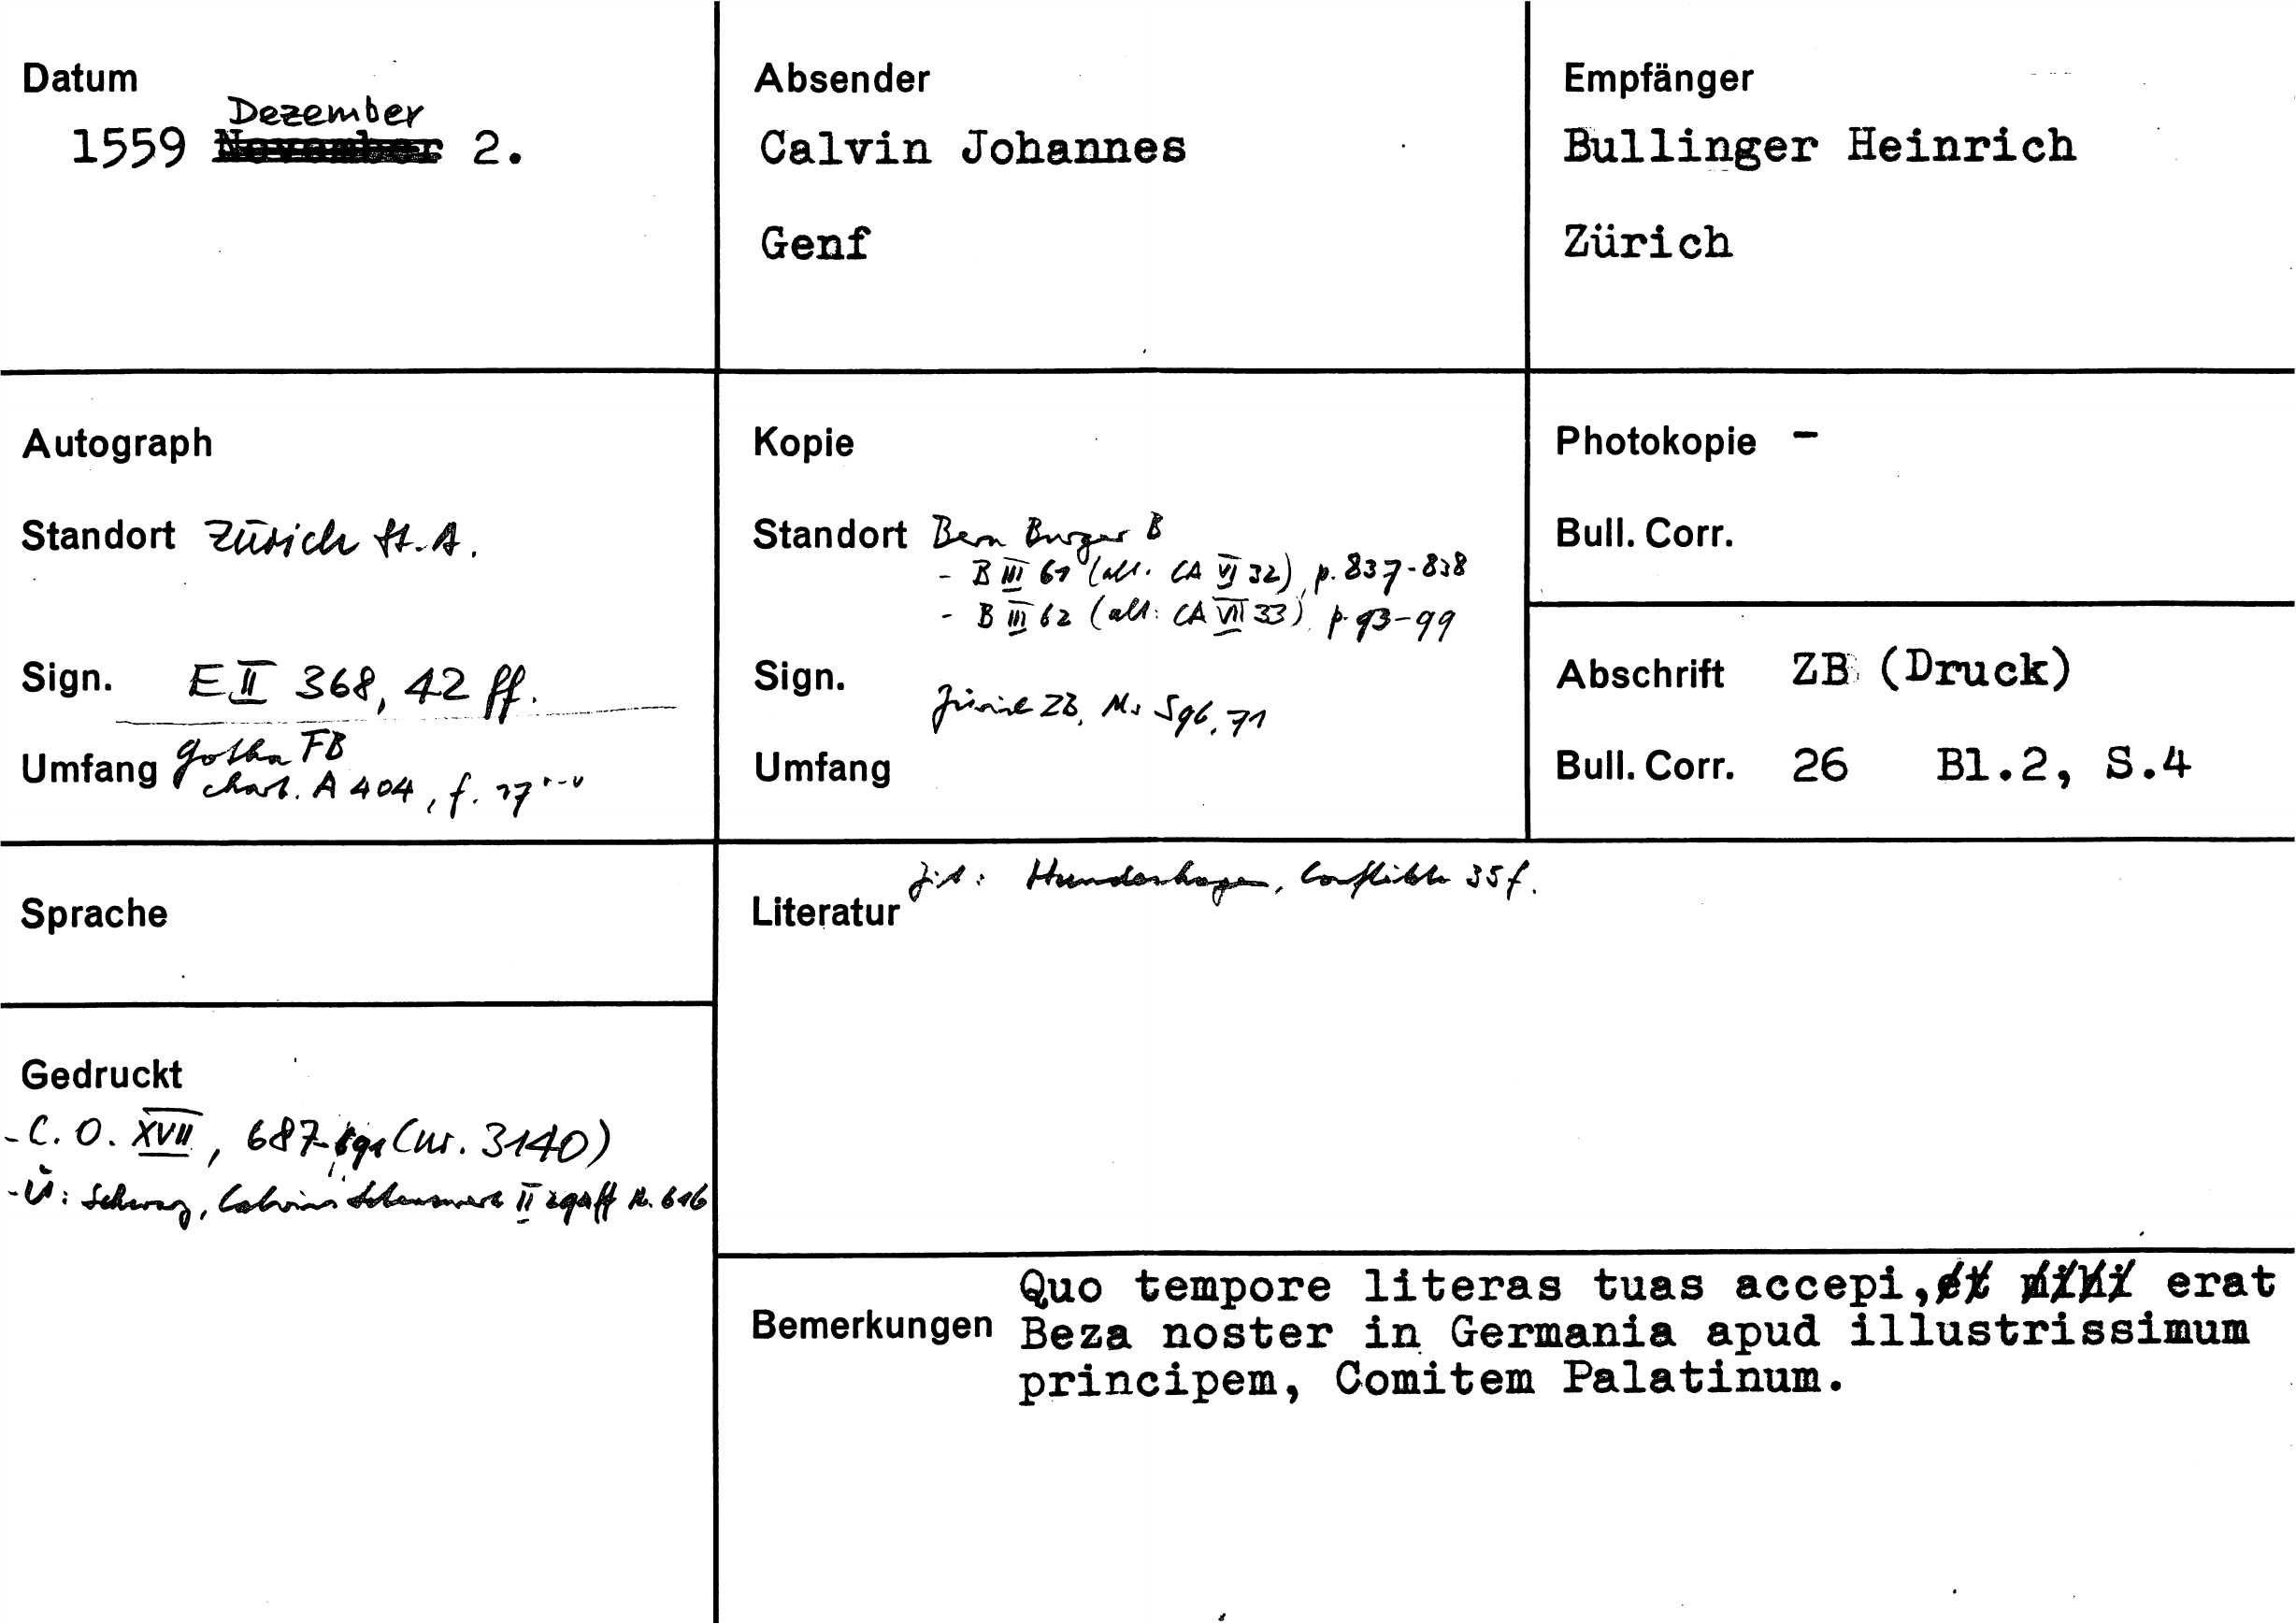 Datum
Dezember
1559 November 2.
Absender
Calvin Johannes
Genf
Empfänger
Bullinger Heinrich
Zürich
Autograph
Standort Zürich St.A.
Sign. E II 368, 42 ff.
Umfang Gotha FB
chart. A 404, f.
Kopie
Standort Bern Burger B
- B III 61 (alt. CA VI 32), p. 837-838
- B III 62 (alt: CA VII 33), p. 93-99
Sign.
Zürich ZB, Ms S 96, 71
Umfang
Photokopie -
Bull. Corr.
Abschrift ZB (Druck)
Bull. Corr. 26 Bl.2, S.4
Sprache
Zit: Hundeshagen, Conflikte 35f.
Literatur
Gedruckt
- C. O. XVII, 687-691 (nr. 3140)
- Ü: Schwarz, Calvins Lebenswerk II
Bemerkungen
Quo tempore literas tuas accepi, et mihi erat
Beza noster in Germania apud illustrissimum
principem, Comitem Palatinum.